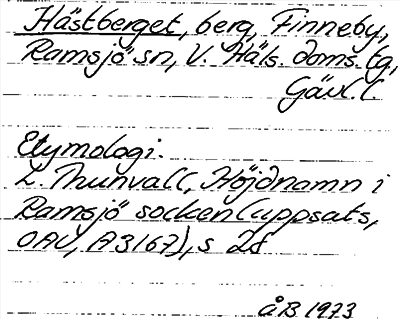 Hästberget, berg, Finneby,
Ramsjö sn, V. Häls. doms. tg,
Gävl. l.
Etymologi.
L. Thunvall, Höjdnamn i
Ramsjö socken (uppsats,
OAU, A3167), s 28
ÅB 1973